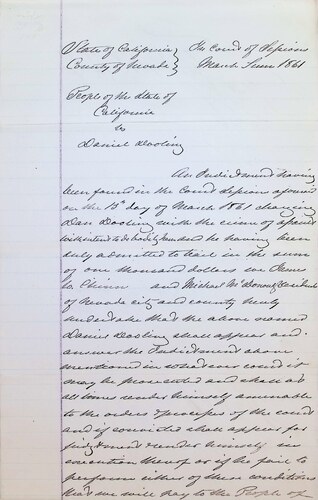 State of California } In Court of Sessions
County of Nevada } March Term 1861
People of the State of
California
vs
Daniel Dooling
An Indictment having
been found in the Court Sessions aforesaid
on the 13th day of March 1861 charging
Dan Dooling with the crime of assault
with intent to do bodily harm and he having been
duly admitted to bail in the sum
of one thousand dollars we
and Michael
of Nevada city and county hereby
undertake that the above named
Daniel Dooling shall appear and
answer the Indictment above
mentioned in whatever court it
may be prosecuted and shall at
all times render himself amenable
to the orders & process of the court
and if convicted shall appear for
judgment & render himself in
execution thereof or if he fail to
perform either of these conditions
that we will pay to the People of